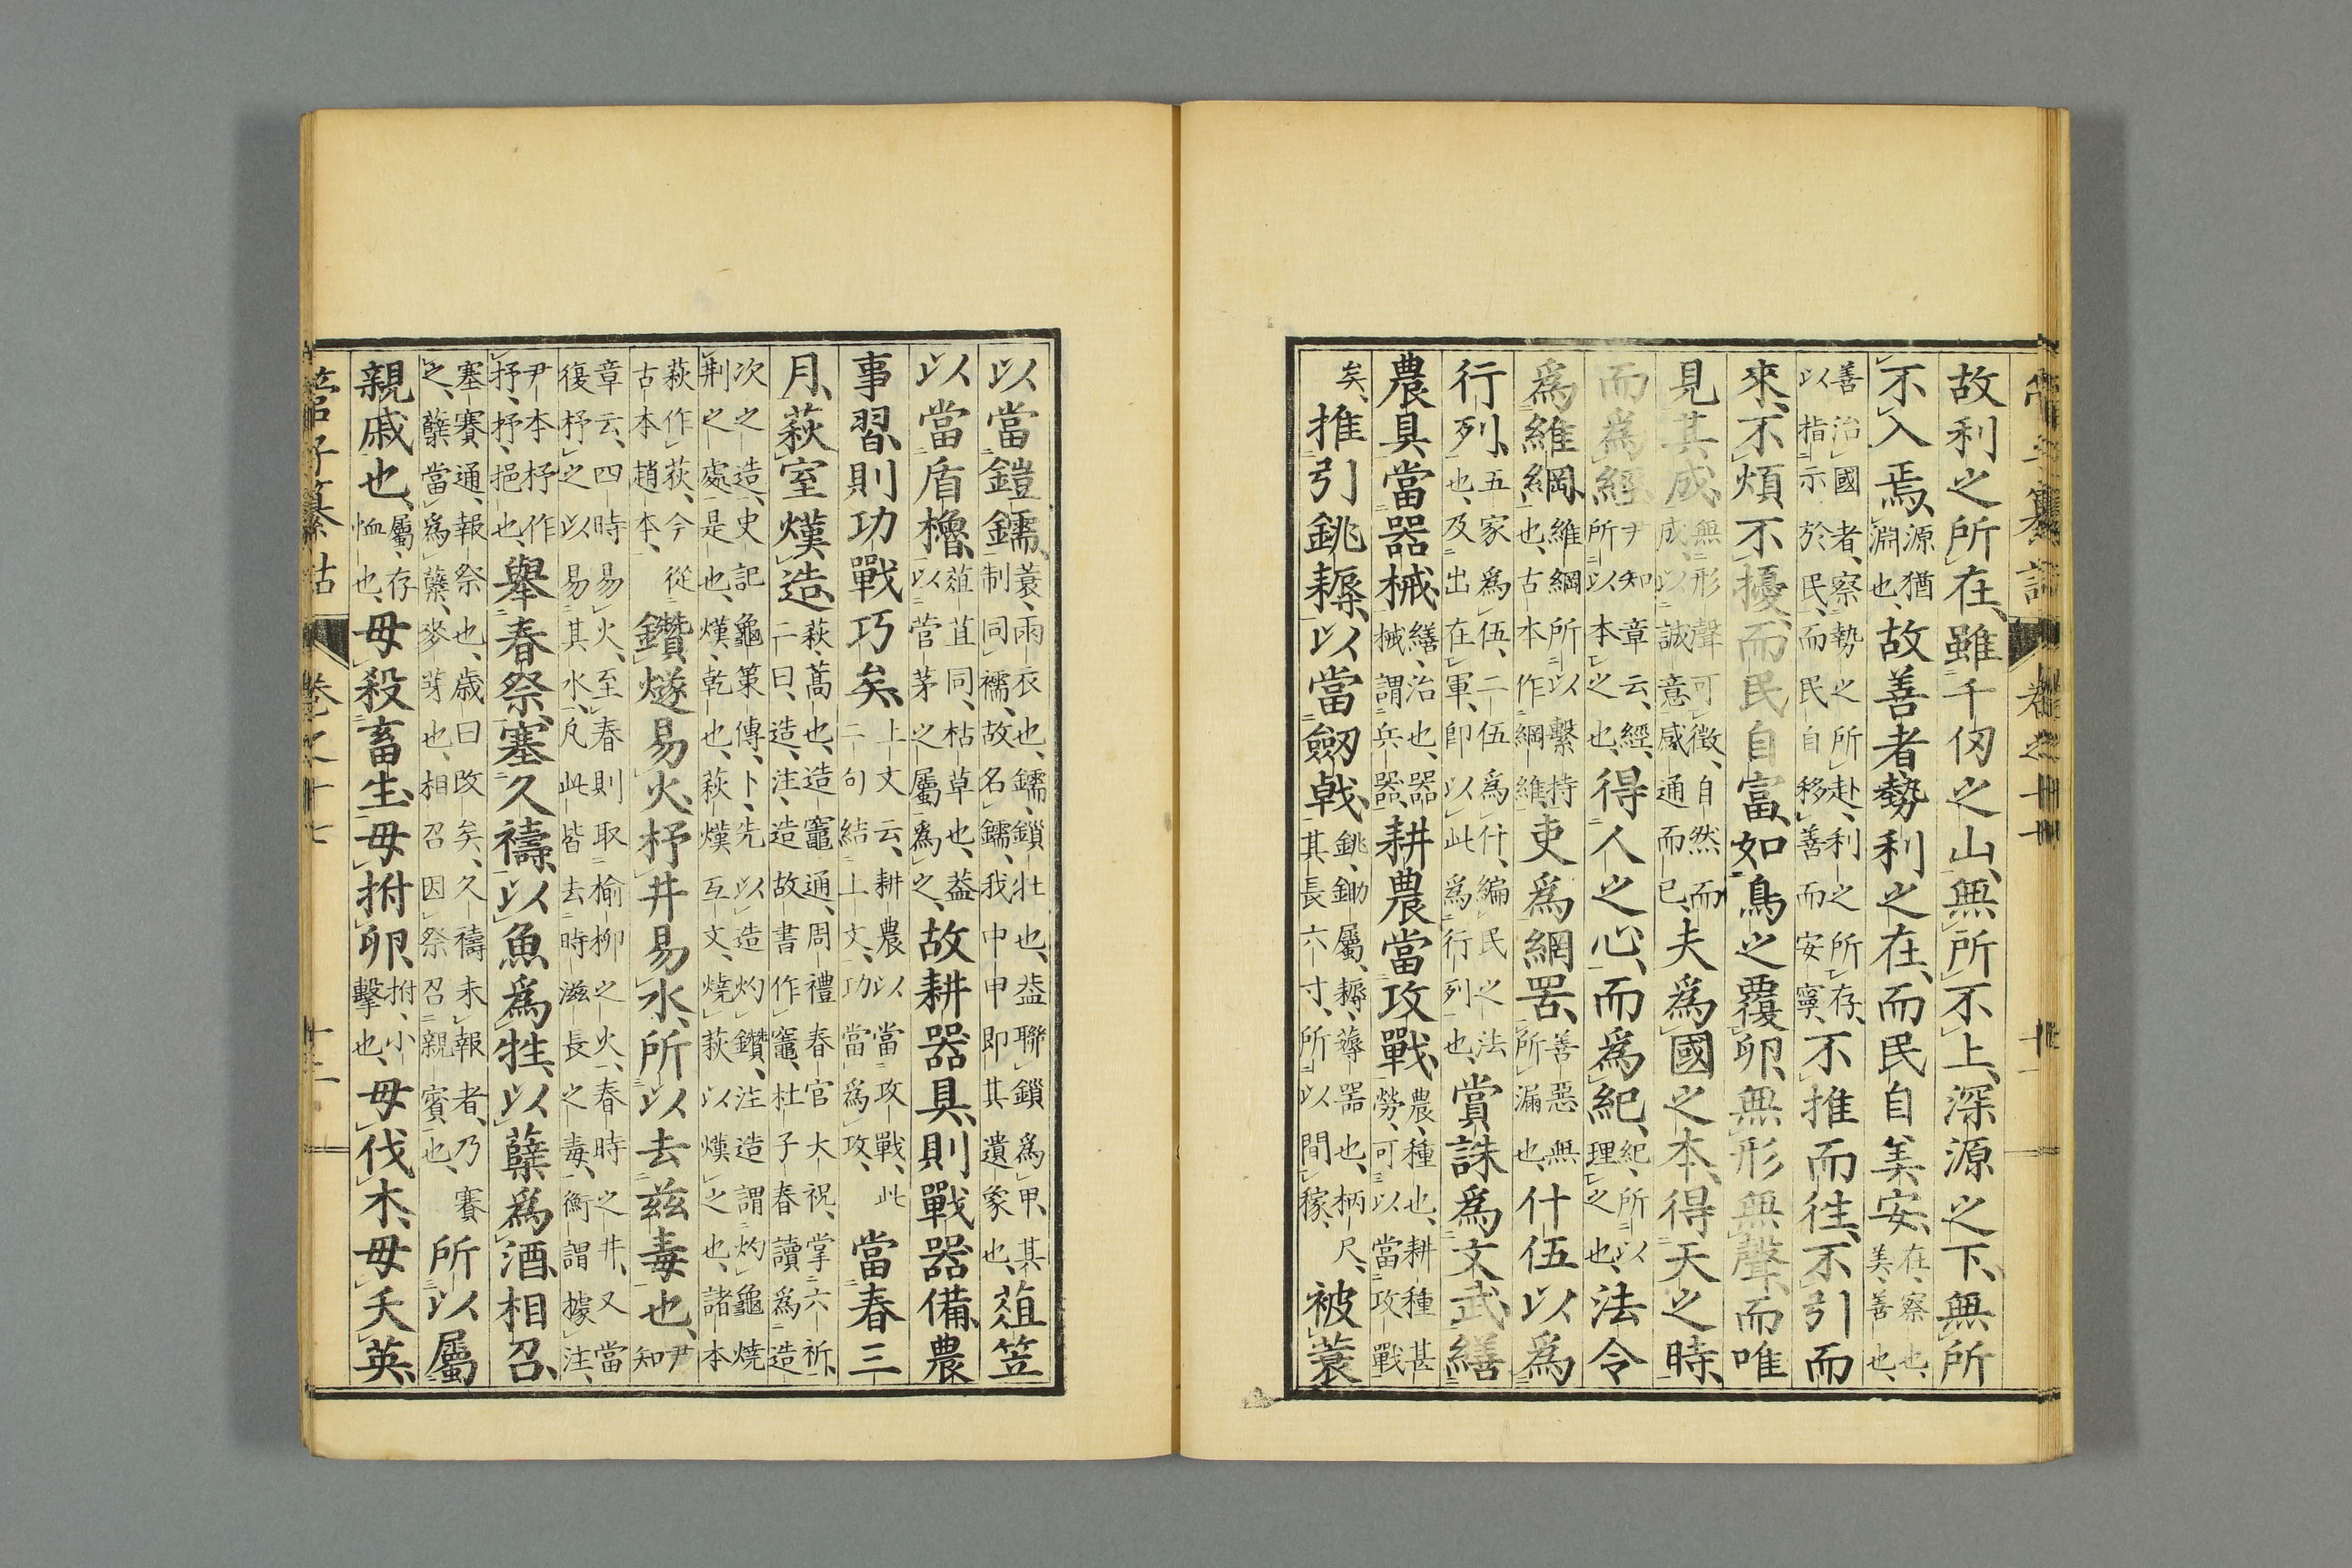 故利之所在、雖千仞之山、無所不上、深源之下、無所
不入焉、源猶淵也、故善者勢利之在、而民自美安、在、察也、美、善也、
善治國者、察勢之所赴、利之所存、以指示於民、而民自移善而安寧、不推而往、不引而
來、不煩不擾、而民自富、如鳥之覆卵、無形無聲、而唯
見其成、無形聲可徵、自然而成、以誠意感通而已、夫爲國之本、得天之時、
而爲經、尹知章云、經、所以本之也、得人之心、而爲紀、紀、所以理之也、法令
爲維綱、維綱所以繫持也、古本作綱維、吏爲網罟、善惡無所漏也、什伍以爲
行列、五家爲伍、二伍爲什、編民之法也、及出在軍、卽以此爲行列也、賞誅爲文武、繕
農具當器械、繕、治也、器械謂兵器、耕農當攻戰、農、種也、耕種甚勞、可以當攻戰
矣、推引銚耨、以當劒戟、銚、鋤屬、耨、薅器也、柄尺、其長六寸、所以間稼、被蓑
以當鎧鑐、蓑、雨衣也、鑐、鎖壯也、葢聯鎖爲甲、其制同襦、故名鑐、我中甲卽其遺象也、菹笠
以當盾櫓、菹苴同、枯草也、葢以菅茅之屬爲之、故耕器具、則戰器備、農
事習、則功戰巧矣、上文云、耕農以當攻戰、此二句結上文、功當爲攻、當春三
月、萩室熯造、萩、蒿也、造竈通、周禮春官大祝、掌六祈、二曰、造、注、造故書作竈、杜子春讀爲造
次之造、史記龜策傳、卜、先以造灼鑽、注造謂灼龜燒荆之處是也、熯、乾也、萩熯互文、燒萩以熯之也、諸本
萩作荻、今從古本趙本、鑽燧易火、杼井易水、所以去茲毒也、尹知
章云、四時易火、至春則取楡柳之火、春時之井、又當復杼之以易其水、凡此皆去時滋長之毒、衡謂據注、
尹本杼作抒、抒、挹也、舉春祭、塞久禱、以魚爲牲、以糱爲酒、相召、
塞賽通、報祭也、歲曰改矣、久禱未報者、乃賽之、糱當爲蘖、麥芽也、相召因祭召親賓也、所以屬
親戚也、屬、存恤也、毋殺畜生、毋拊卵、拊、小擊也、毋伐木、毋夭英、
管子纂詁 卷之十七 十二